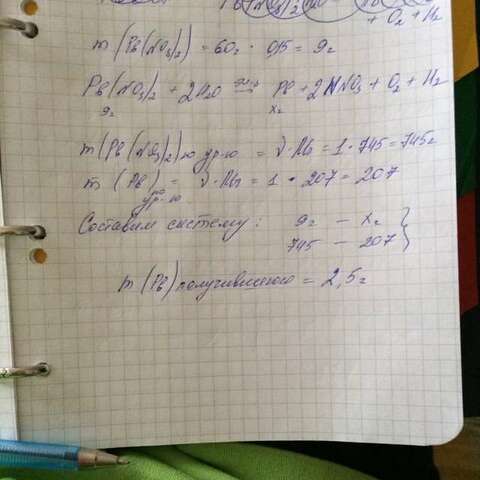 + O₂ + H₂
m (Pb(NO₃)₂) = 60г · 0,15 = 9г
Pb(NO₃)₂ + 2H₂O → Pb + 2HNO₃ + O₂ + H₂
9г xг
m (Pb(NO₃)₂) по ур-ю = ν·Mr = 1 · 745 = 745г
m (Pb) по ур-ю = ν·Mr = 1 · 207 = 207
Составим систему: 9г — xг
745 — 207
m (Pb) получившегося = 2,5г